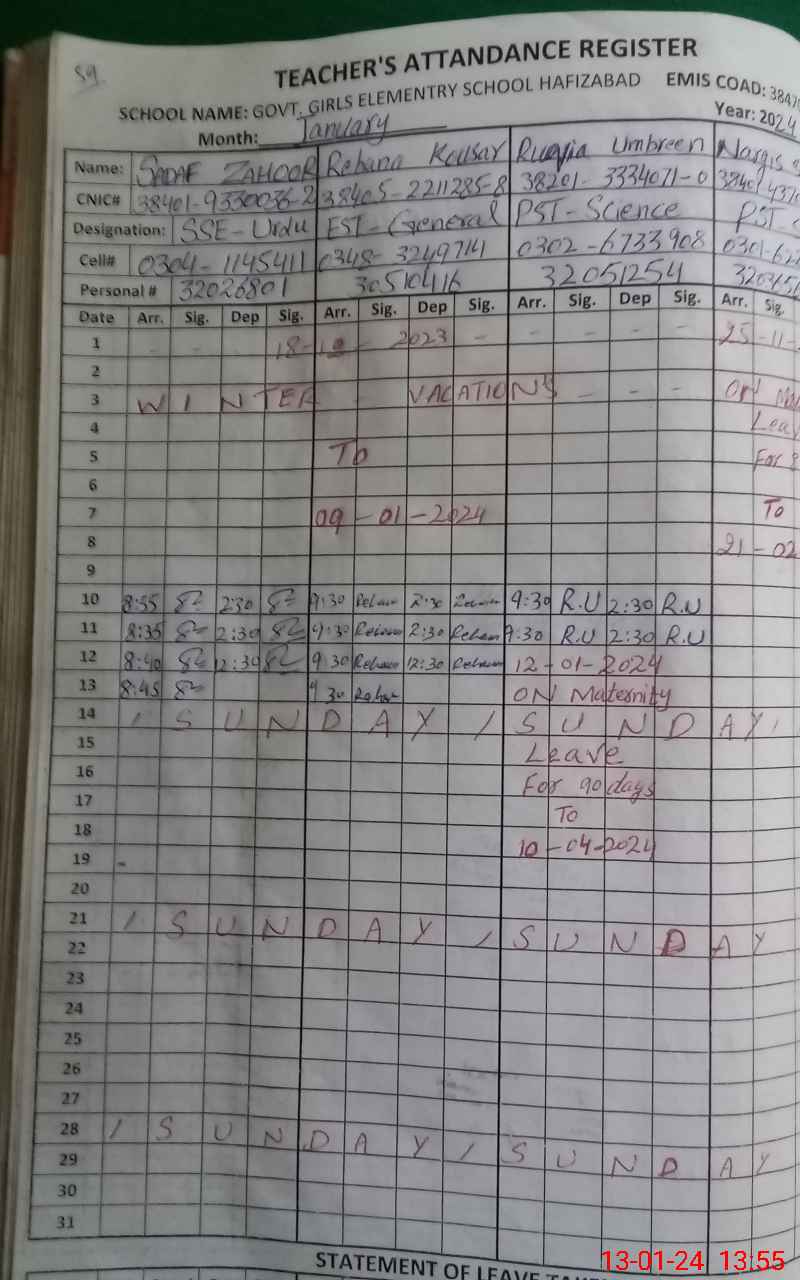 59
TEACHER'S ATTANDANCE REGISTER
SCHOOL NAME: GOVT. GIRLS ELEMENTRY SCHOOL HAFIZABAD EMIS COAD: 3847
Month: January Year: 2024
Name: SADAF ZAHOOR Rehana Kousar Ruqyia Umbreen Nargis
CNIC# 38401-9330036-2 38405-2211285-8 38201-3334071-0 38401-437
Designation: SSE-Urdu EST-General PST-Science PST-
Cell# 0304-1145411 0348-3249714 0302-6733908 0301-62
Personal # 32026801 30510416 32051254
Date Arr. Sig. Dep Sig. Arr. Sig. Dep Sig. Arr. Sig. Dep Sig. Arr. Sig.
1 - - 18-12-2023 - - - - - - 25-11-
2
3 WINTER VACATIONS - - - ON
4 Leav
5 To For
6
7 09-01-2024 To
8 21-02
9
10 8:35 2:30 9:30 Rehana 2:30 9:30 R.U 2:30 R.U
11 8:35 2:30 9:30 Rehana 2:30 Rehana 9:30 R.U 2:30 R.U
12 8:40 12:30 9:30 Rehana 12:30 Rehana 12-01-2024
13 8:45 9:30 Rehana ON Maternity
14 / SUNDAY / SUNDAY /
15 Leave
16 For 90 days
17 To
18
19 - 10-04-2024
20
21 / SUNDAY / SUNDAY
22
23
24
25
26
27
28 / SUNDAY / SUNDAY
29
30
31
STATEMENT OF LEAVE
13-01-24 13:55